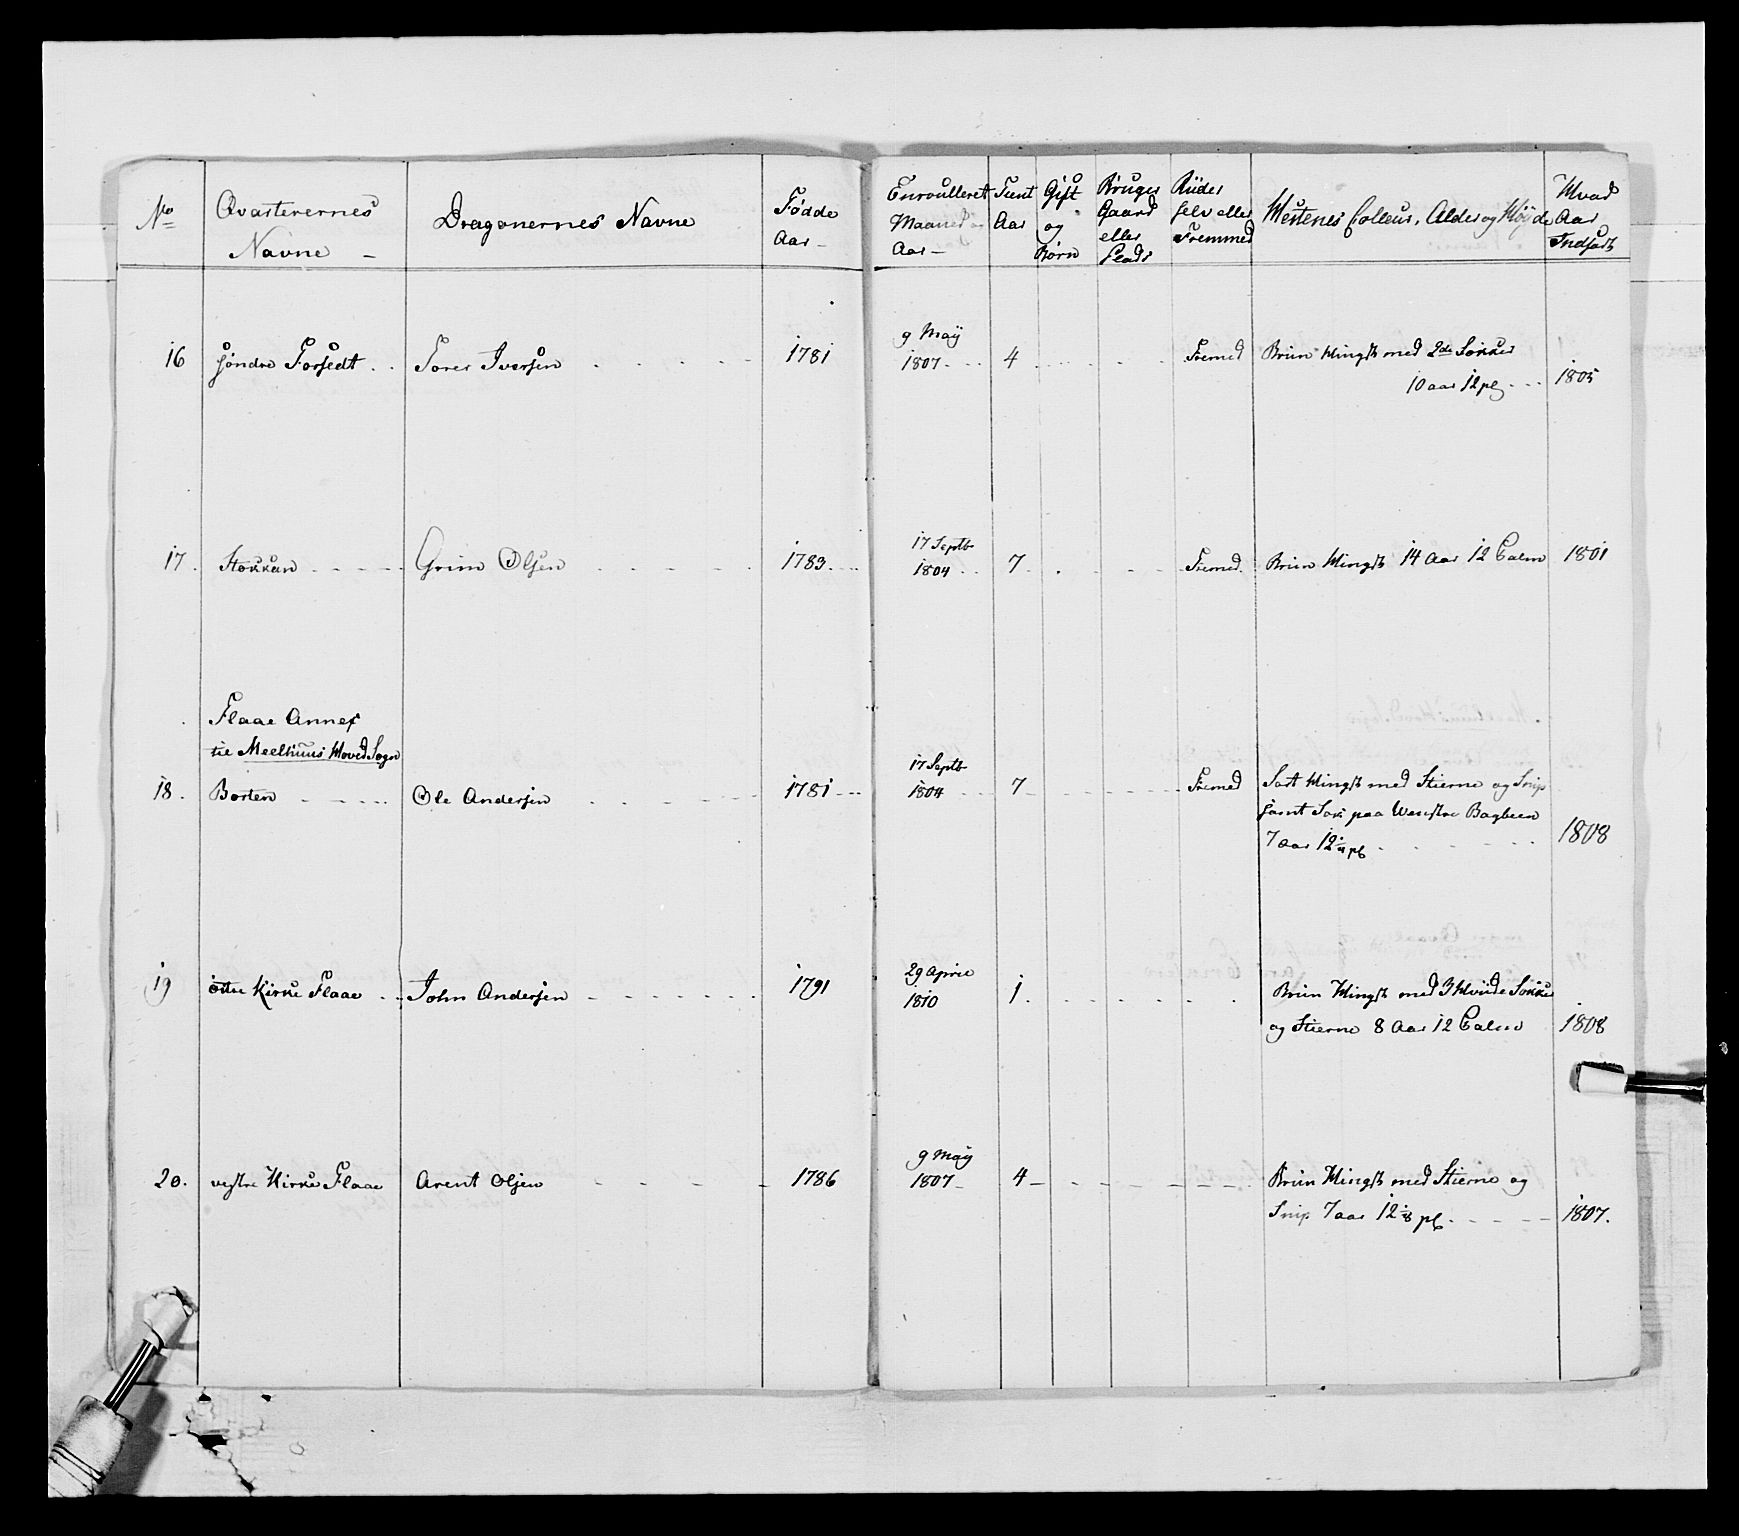 No
Qvarterernes
Navne
Dragonernes Navne
Fødde
Aar
Enroulleret
Maaned og
Aar
Tient
Aar
Gift
og
Børn
Bruger
Gaard
eller
Plads
Riider
selv eller
Fremmed
Hestenes Colleur, Alder og Høyde
Hvad
Aar
Indsadt
16 Søndre Forsedt Tores Iversen 1781 9 Maij
1807 4 Fremed Bruun Hingst med 2de Sokker
10 aar 12 pl 1805
17. Stokkan Grim Olsen 1783 17 Septb
1804 7 Fremed Bruun Hingst 14 Aar 12 Palm 1801
Flaae Annex
til Meelhuus Hoved Sogn
18. Borten Ole Andersen 1781 17 Septb
1804 7 Fremed Sort Hingst med Stierne og Snip
samt Sok paa Wenstre Bagbeen
7 aar 12 pl 1808
19 øttre Kirke Flaae John Andersen 1791 29 April
1810 1 Bruun Hingst med 3 Hviide Sokker
og Stierne 8 Aar 12 Palm 1808
20. vestre Kirke Flaae Arent Olsen 1786 9 Maij
1807 4 Bruun Hingst med Stierne og
Snip 7 aar 12 pl 1807.